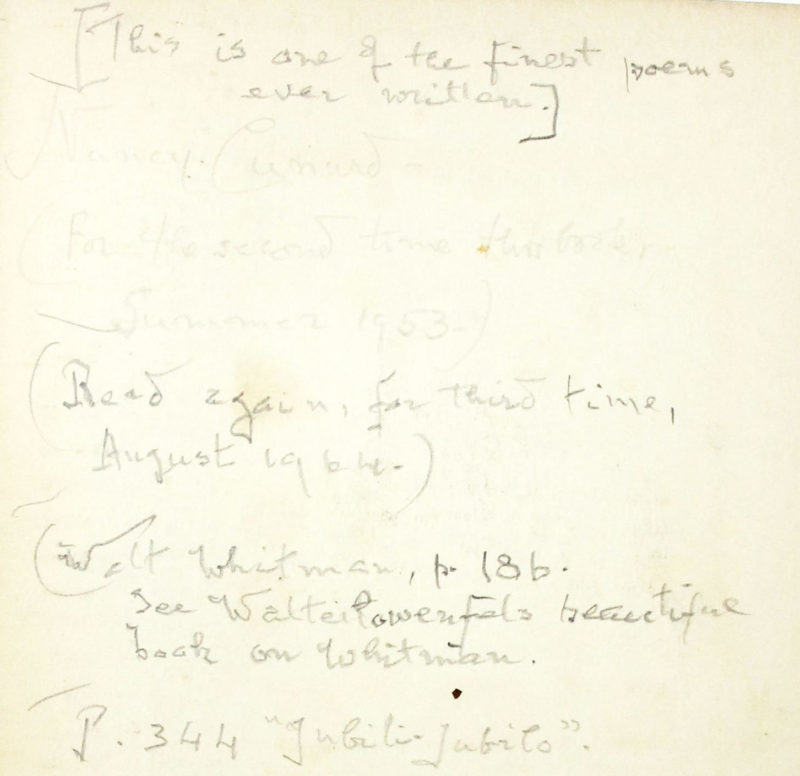 [This is one of the finest poems
ever written.]
Nancy Cunard -
(For the second time this book,
Summer 1953-)
(Read again, for third time,
August 1964.)
(Walt Whitman, p. 186.
See Walter Lowenfels beautiful
book on Whitman.
P. 344 "Jubili-Jubilo".